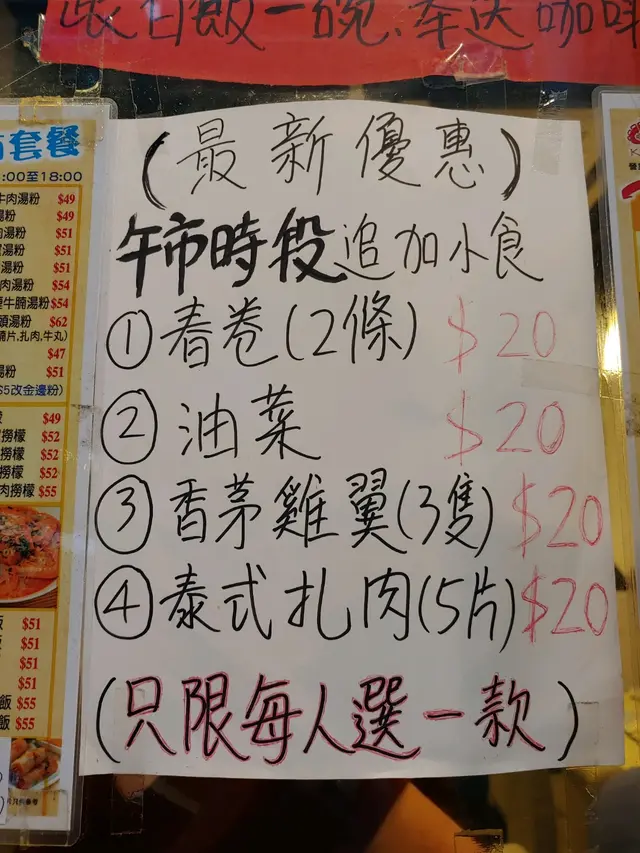 白飯一碗,奉送咖啡
套餐
:00至18:00
牛肉湯粉 $49
湯粉 $49
肉湯粉 $51
湯粉 $51
湯粉 $51
肉湯粉 $54
牛腩湯粉 $54
湯粉 $62
片,扎肉,牛丸)
$47
湯粉 $51
$5改金邊粉)
$49
撈檬 $52
撈檬 $52
撈檬 $52
肉撈檬 $55
飯 $51
$51
$51
$51
飯 $55
飯 $55
(最新優惠)
午市時段追加小食
①春卷(2條) $20
②油菜 $20
③香茅雞翼(3隻) $20
④泰式扎肉(5片) $20
(只限每人選一款)